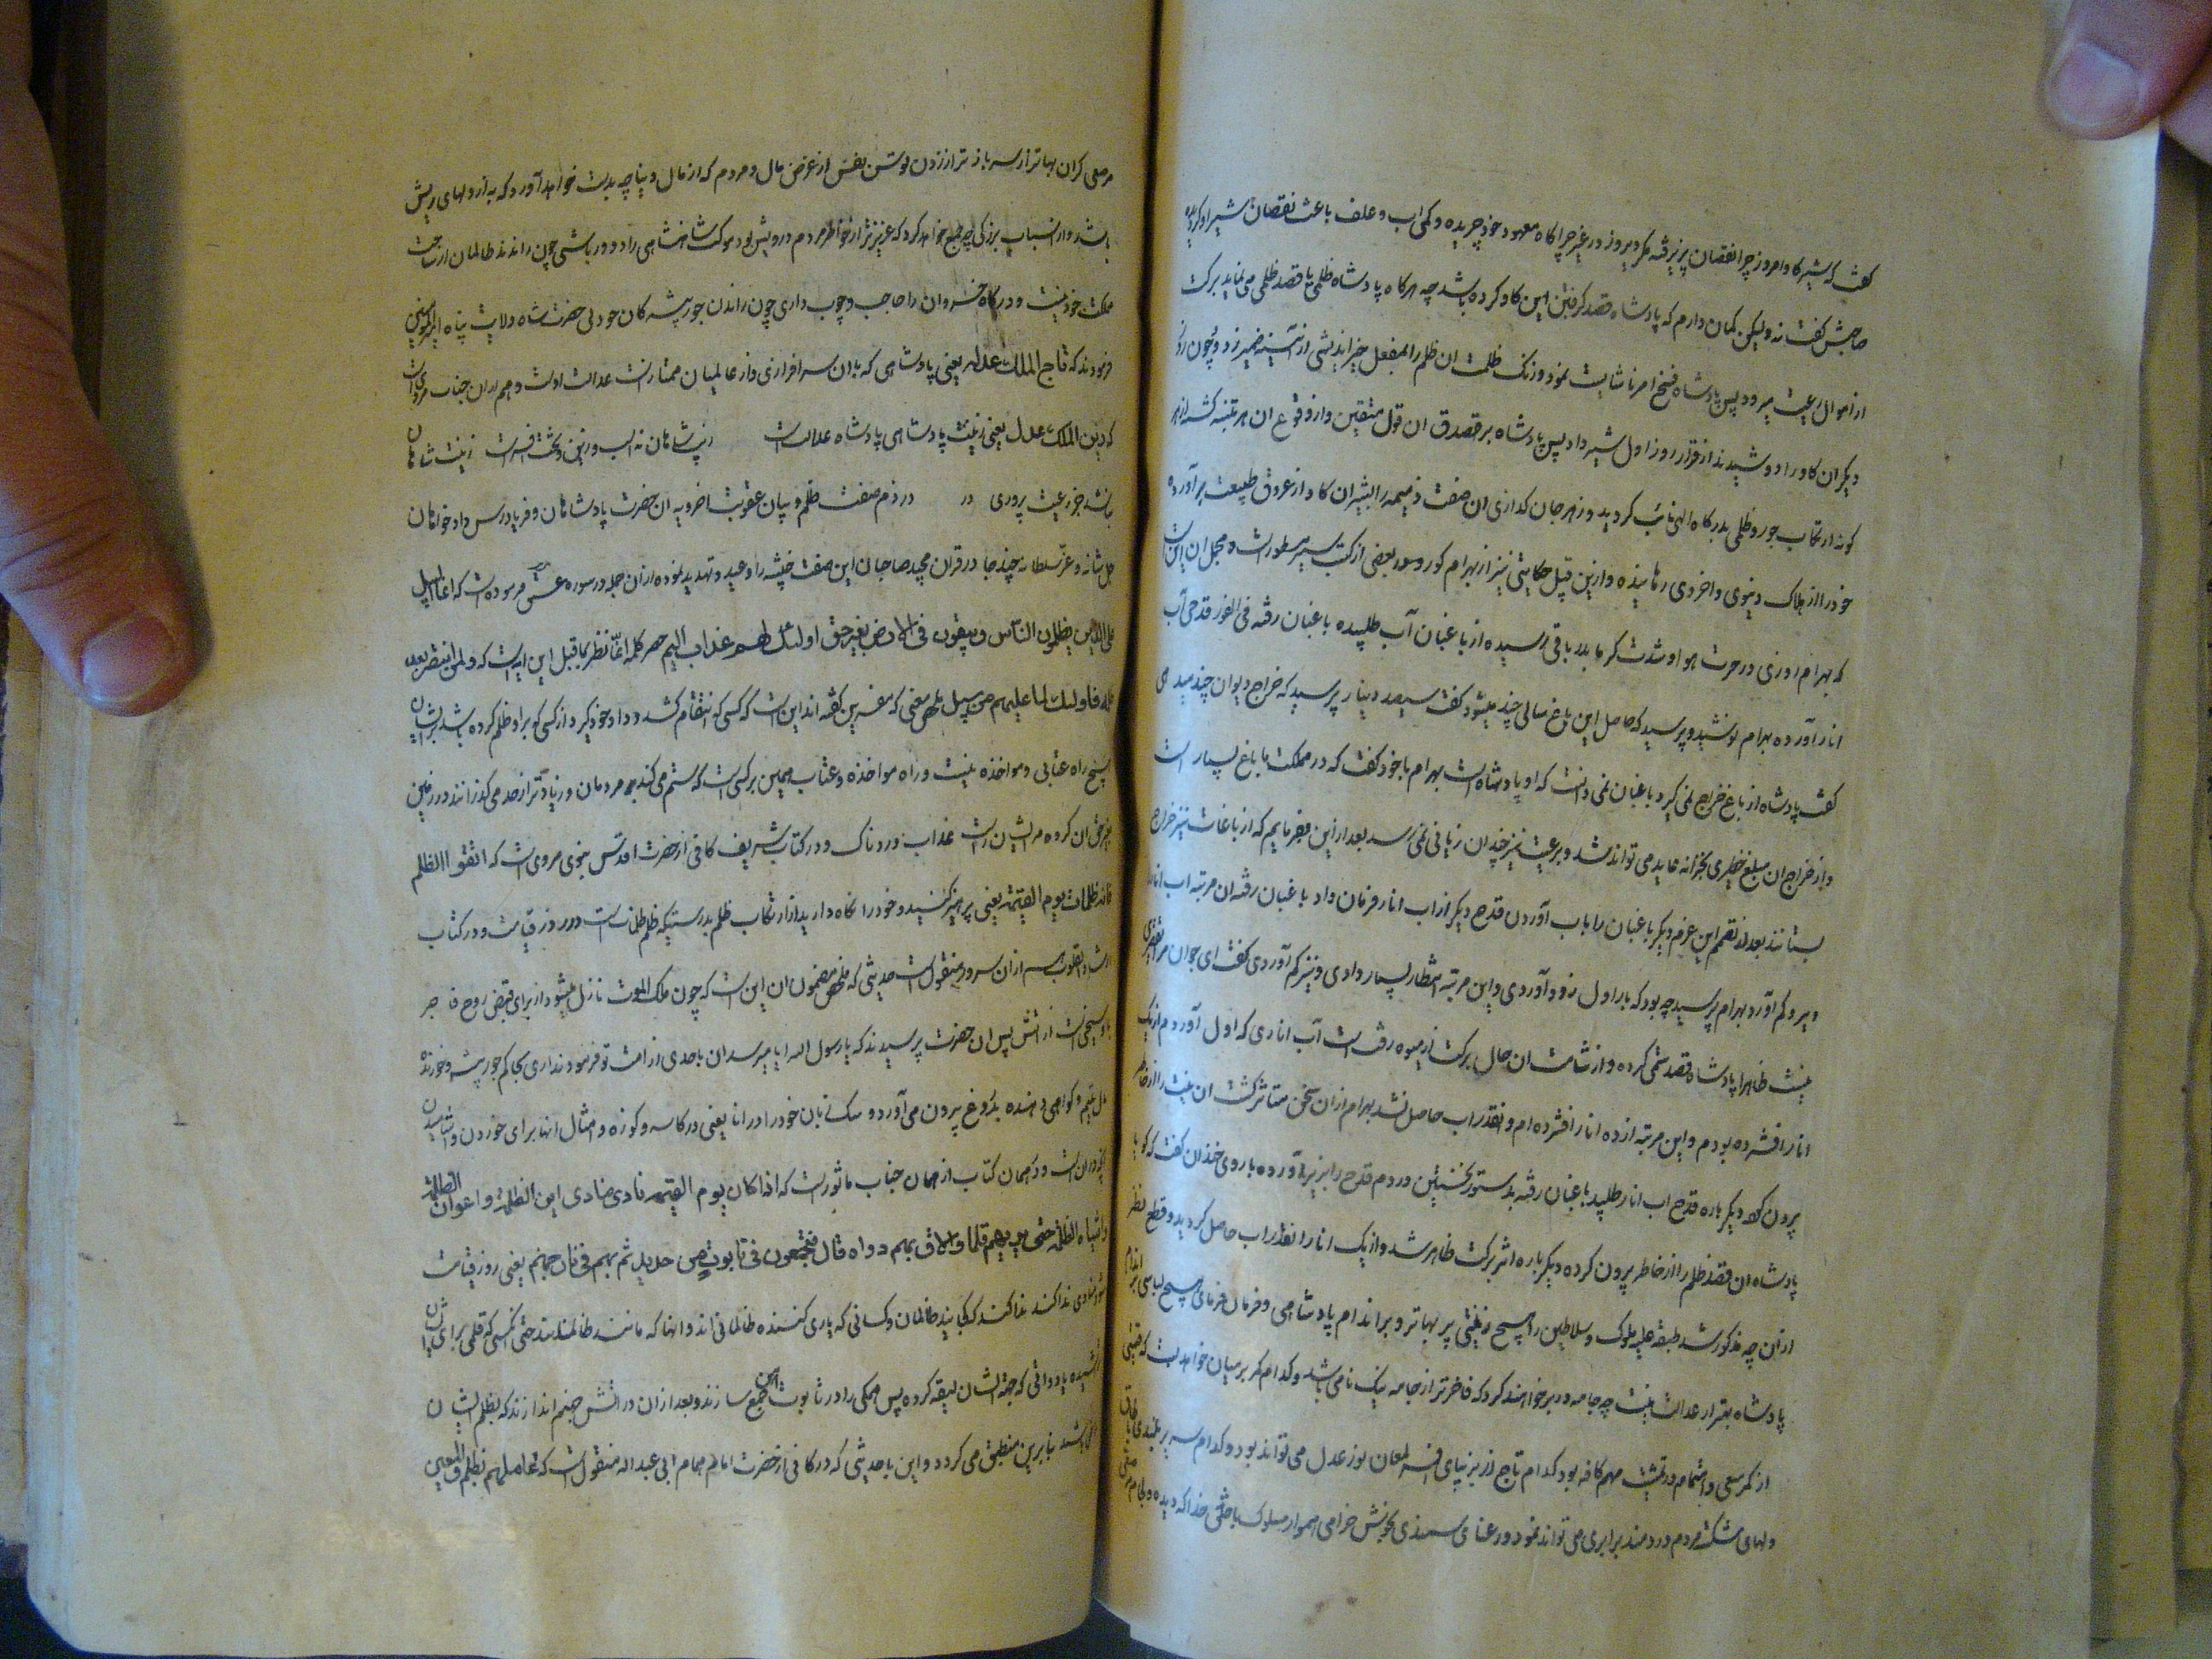 گفت که شیر گاو امروز چرا نقصان پذیرفته مگر دیروز در غیر چراگاه معهود خود چریده و کمی آب و علف باعث نقصان شیر او گردیده
صاحبش گفت نه ولیکن گمان دارم که پادشاه قصد گرفتن این گاو کرده باشد چه هر گاه پادشاه ظلمی یا قصد ظلمی می نماید برکت
از اموال رعیت میرود پس پادشاه فسخ امر ناشایست نمود و زنگ ظلمت ان ظلم را از آئینه ضمیر زدود چون روز
دیگر ان گاو را دوشیدند از قرار روز اول شیر داد پس پادشاه بر صدق ان قول متیقن و از وقوع ان امر متنبه گشته از هر
گونه ارتکاب جور و ظلمی بدرگاه الهی تائب گردید و زهر جان گدازی ان صفت ذمیمه را بشیر ان گاو از عروق طبیعت برآورده
خود را از هلاک دنیوی و اخروی رهانیده و ازین قبیل حکایتی نیز از بهرام گور در بعضی از کتب سیر مسطور است و مجمل ان این است
که بهرام روزی در حرارت هوا و شدت گرما بدر باغی رسیده از باغبان آب طلبیده باغبان رفته فی الفور قدحی آب
انار آورده بهرام نوشید و پرسید که حاصل این باغ سالی چند میشود گفت سیصد دینار پرسید که خراج دیوان چند میدهی
گفت پادشاه از باغ خراج نمی گیرد باغبان نمی دانست که او پادشاه است بهرام با خود گفت که در مملکت ما باغ بسیار است
و از خراج ان مبلغ خطیری بخزانه عاید می تواند شد و برعیت نیز چندان زیانی نمی رسد بعد ازین بفرمایم که از باغات نیز خراج
بستانند بعد از تصمیم این عزم دیگر باغبان را باب آوردن قدح دیگر از اب انار فرمان داد باغبان رفته ان مرتبه اب انار
دیر و کم آورد بهرام پرسید چه بود که بار اول زود آوردی و این مرتبه انتظار بسیار دادی و نیز کم آوردی گفت ای جوان مرا تقصیری
نیست ظاهرا پادشاه قصد ستمی کرده و از شامت ان حال برکت از میوه رفته است آب اناری که اول آوردم از یک
انار افشرده بودم و این مرتبه از ده انار افشرده ام و انقدر اب حاصل نشد بهرام ازان سخن متاثر گشته ان نیت را از خاطر
بیرون کرد دیگر باره قدح اب انار طلبید باغبان رفته بدستور نخستین در دم قدح را لبریز آورده با روی خندان گفت که گویا
پادشاه ان قصد ظلم را از خاطر بیرون کرده دیگر باره اثر برکت ظاهر شد و از یک انار انقدر اب حاصل گردید و قطع نظر
ازان چه مذکور شد طبقه علیه ملوک و سلاطین را هیچ زینتی پر بهاتر و بر اندام پادشاهی و فرمان فرمائی هیچ لباسی
پادشاه بغیر از عدالت نیست چه جامه در بر خواهند کرد که فاخر تر از جامه نیک نامی باشد و کدام کمر بر میان خواهد بست که قیمتی
از کمر سعی و اهتمام در تمشیت مهم کافه بود کدام تاج از زیبائی افسر لمعان نور عدل می تواند بود و کدام سریر بلندی
دلهای شکسته مردم دردمند برابری می تواند نمود و رعنائی سمندی بخوش خرامی هموار سلوک با خلق خدا که دیده
مرصعی گران بهاتر از سر باز تر از زدن نفس از غرض مال و مردم که از مال دنیا چه بدست خواهد آورد که به از دلهای ریش
باشد و از اسباب بزرگی چه جمع خواهد کرد که عزیز تر از خاطر مردم درویش بود موکب شاهنشاهی را دورباشی چون راندن ظالمان از ساحت
مملکت خود نیست و درگاه خسروان را حاجب و چوب داری چون راندن جور پیشه گان حضرت شاه ولایت پناه امیرالمومنین
فرمودند که تاج الملک عدله یعنی پادشاهی که بان سرافرازی و از عالمیان ممتاز است عدالت اوست و هم ازان جناب مرویست
که زین الملک عدل یعنی زینت پادشاهی پادشاه عدالت است زیب شاهان نه اسب و زین و تخت افسر است زینت شاهان
نباشد جز رعیت پروری در ذم صفت ظلم و بیان عقوبت اخرویه ان حضرت پادشاهان و فریادرس دادخواهان
جل شانه و عز سلطانه چند جا در قران مجید صاحبان این صفت خبیثه را وعید و تهدید نموده ازان جمله در سوره فرموده است که انما السبیل
علی الذین یظلمون الناس ویبغون فی الارض بغیر حق اولئک لهم عذاب الیم حصر کلمه انما نظر بما قبل این ایه است که ولمن انتصر بعد
ظلمه فاولئک ما علیهم من سبیل معنی که مفسرین گفته اند این است که کسی که انتقام کشد و داد خود گیرد از کسی که بر او ظلم کرده باشد بر ایشان
هیچ راه عتابی و مواخذه نیست و راه مواخذه و عتاب همین بر کسی است که ستم می کند بر مردمان و زیاده از حد می گذرانند در زمین
بغیر حق ان گروه مر ایشان راست عذاب دردناک و در کتاب شریف کافی از حضرت اقدس نبوی مرویست که اتقوا الظلم
فانه ظلمات یوم القیمه یعنی پرهیز کنید و خود را نگاه دارید از ارتکاب ظلم بدرستیکه ظلم ظلمات است در روز قیامت و در کتاب
ارشاد القلوب هم ازان سرور منقولست حدیثی که ملخص مضمون ان این است که چون ملک الموت نازل میشود از برای قبض روح فاجر
با او سیخی است از اتش پس ان حضرت پرسیدند که یا رسول الله ایا میرسد ان باحدی از امت تو فرمودند اری بحاکم جور پیشه و خورنده
مال یتیم و گواهی دهنده بدروغ بیرون می آورد و سگ زبان خود را در انا یعنی در کاسه و کوزه و امثال انها برای خوردن و اشامیدن
و در همان کتاب از همان جناب ماثور است که اذا کان یوم القیمه نادی منادی این الظلمة و اعوان الظلمة
واشباه الظلمة حتی من بری لهم قلما ولاق لهم دواة قال فیجتمعون فی تابوت من حدید ثم یرمی بهم فی نار جهنم یعنی روز قیامت
شود منادی ندا کند که کجایند ظالمان و کسانی که یاری کننده ظالمان اند و انها که مانند ظالمانند حتی کسی که قلمی برای ایشان
تراشیده یا دواتی که جهة ایشان لیقه کرده پس همگی را در تابوت آهن جمع سازند و بعد ازان در اتش جهنم اندازند که بظلم ایشان
بنابرین منطبق می گردد و این با حدیثی که در کافی از حضرت امام همام ابی عبدالله منقول است که العامل بالظلم و المعین